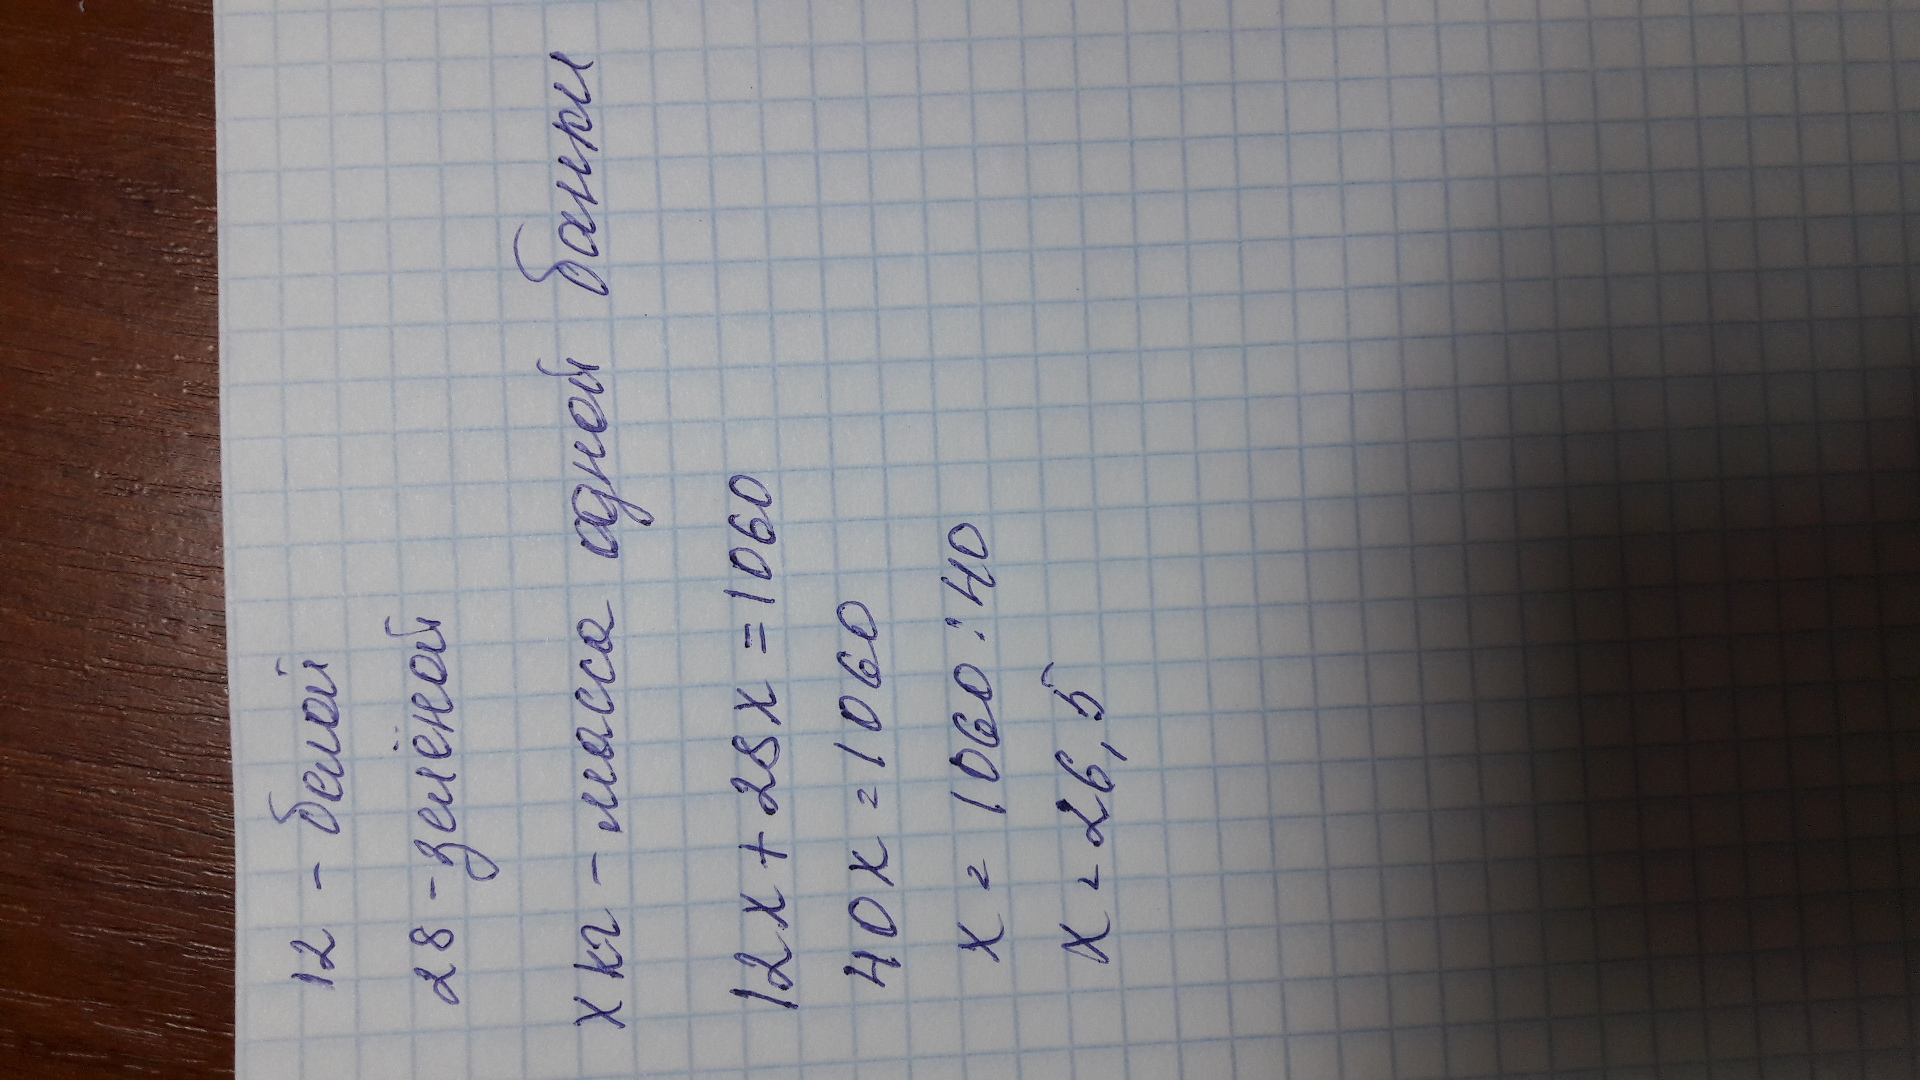 12 - белой
28 - зелёной
х кг - масса одной банки
12х + 28х = 1060
40х = 1060
х = 1060 : 40
х = 26,5